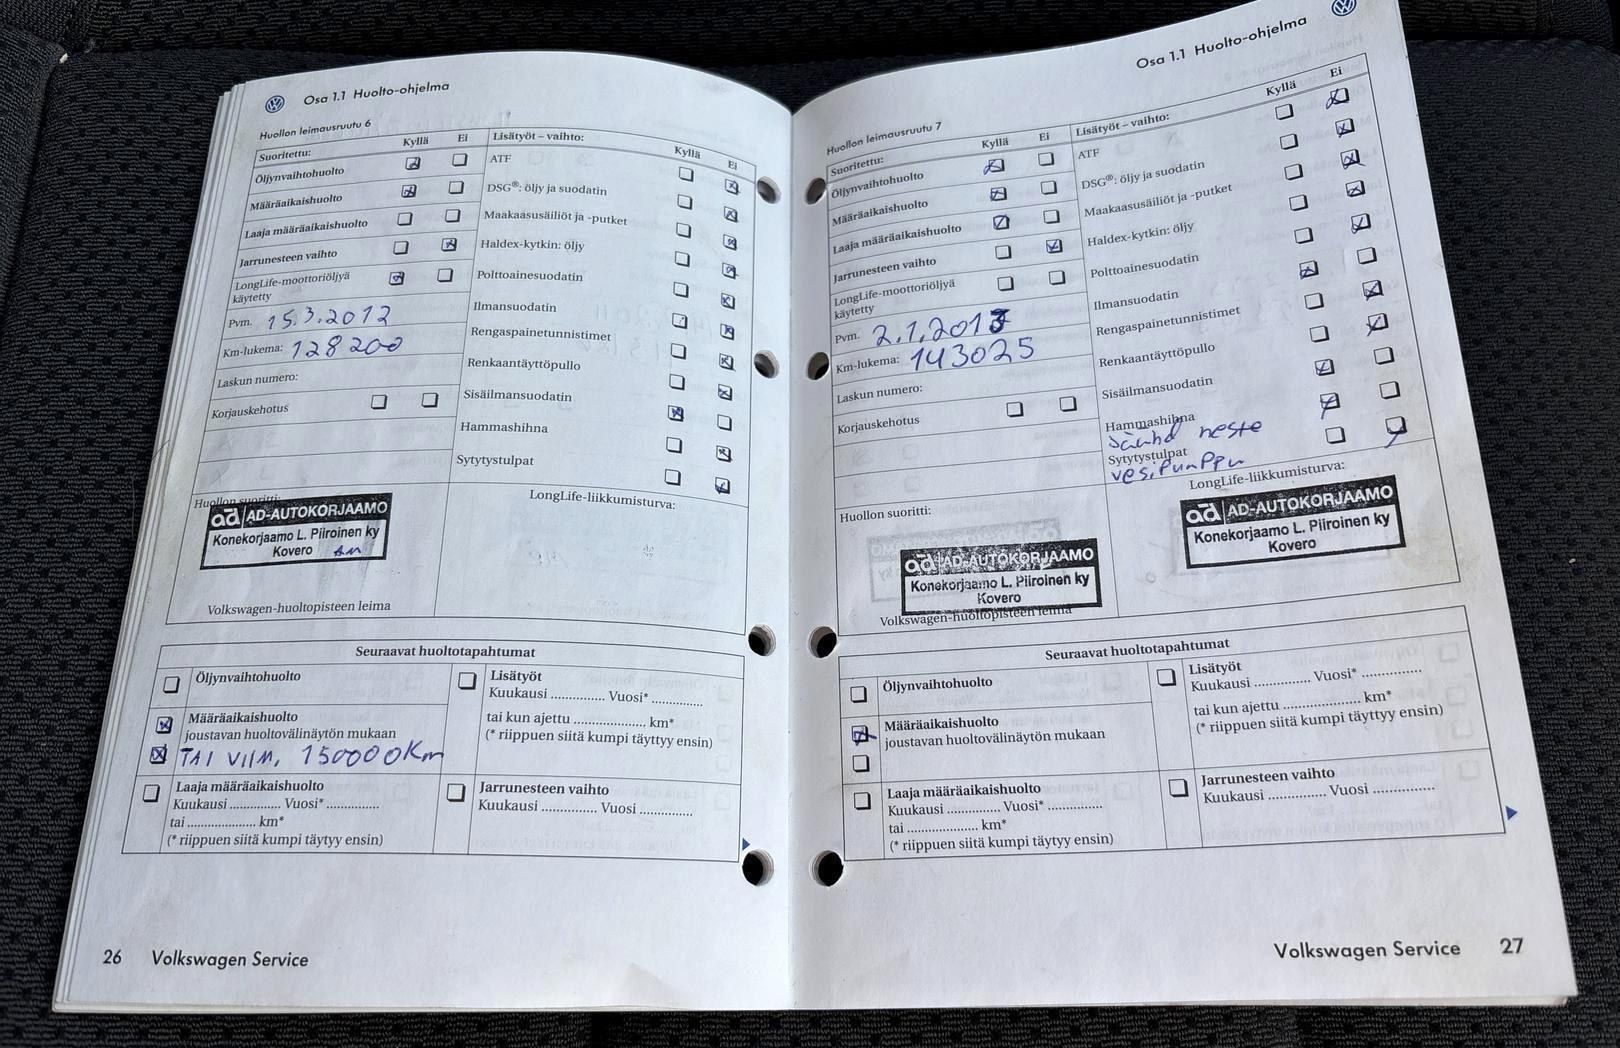 Osa 1.1 Huolto-ohjelma
Huollon leimausruutu 6
Suoritettu: Kyllä Ei
Öljynvaihtohuolto
Määräaikaishuolto
Laaja määräaikaishuolto
Jarrunesteen vaihto
LongLife-moottoriöljyä
käytetty
Pvm. 15.3.2012
Km-lukema: 128200
Laskun numero:
Korjauskehotus
Lisätyöt – vaihto: Kyllä Ei
ATF
DSG®: öljy ja suodatin
Maakaasusäiliöt ja -putket
Haldex-kytkin: öljy
Polttoainesuodatin
Ilmansuodatin
Rengaspainetunnistimet
Renkaantäyttöpullo
Sisäilmansuodatin
Hammashihna
Sytytystulpat
Huollon suoritti:
ad AD-AUTOKORJAAMO
Konekorjaamo L. Piiroinen ky
Kovero
Volkswagen-huoltopisteen leima
LongLife-liikkumisturva:
Seuraavat huoltotapahtumat
Öljynvaihtohuolto
Määräaikaishuolto
joustavan huoltovälinäytön mukaan
TAI VIIM. 150000Km
Laaja määräaikaishuolto
Kuukausi ............. Vuosi* .............
tai ..................... km*
(* riippuen siitä kumpi täytyy ensin)
Lisätyöt
Kuukausi .............. Vuosi* .............
tai kun ajettu .................... km*
(* riippuen siitä kumpi täyttyy ensin)
Jarrunesteen vaihto
Kuukausi .............. Vuosi ..............
26 Volkswagen Service
Osa 1.1 Huolto-ohjelma
Huollon leimausruutu 7
Suoritettu: Kyllä Ei
Öljynvaihtohuolto
Määräaikaishuolto
Laaja määräaikaishuolto
Jarrunesteen vaihto
LongLife-moottoriöljyä
käytetty
Pvm. 2.1.2013
Km-lukema: 143025
Laskun numero:
Korjauskehotus
Lisätyöt – vaihto: Kyllä Ei
ATF
DSG®: öljy ja suodatin
Maakaasusäiliöt ja -putket
Haldex-kytkin: öljy
Polttoainesuodatin
Ilmansuodatin
Rengaspainetunnistimet
Renkaantäyttöpullo
Sisäilmansuodatin
Hammashihna
neste
Sytytystulpat
vesipumppu
Huollon suoritti:
ad AD-AUTOKORJAAMO
Konekorjaamo L. Piiroinen ky
Kovero
Volkswagen-huoltopisteen leima
LongLife-liikkumisturva:
ad AD-AUTOKORJAAMO
Konekorjaamo L. Piiroinen ky
Kovero
Seuraavat huoltotapahtumat
Öljynvaihtohuolto
Määräaikaishuolto
joustavan huoltovälinäytön mukaan
Laaja määräaikaishuolto
Kuukausi ............. Vuosi* .............
tai ..................... km*
(* riippuen siitä kumpi täytyy ensin)
Lisätyöt
Kuukausi .............. Vuosi* ..............
tai kun ajettu ..................... km*
(* riippuen siitä kumpi täyttyy ensin)
Jarrunesteen vaihto
Kuukausi .............. Vuosi ..............
Volkswagen Service 27